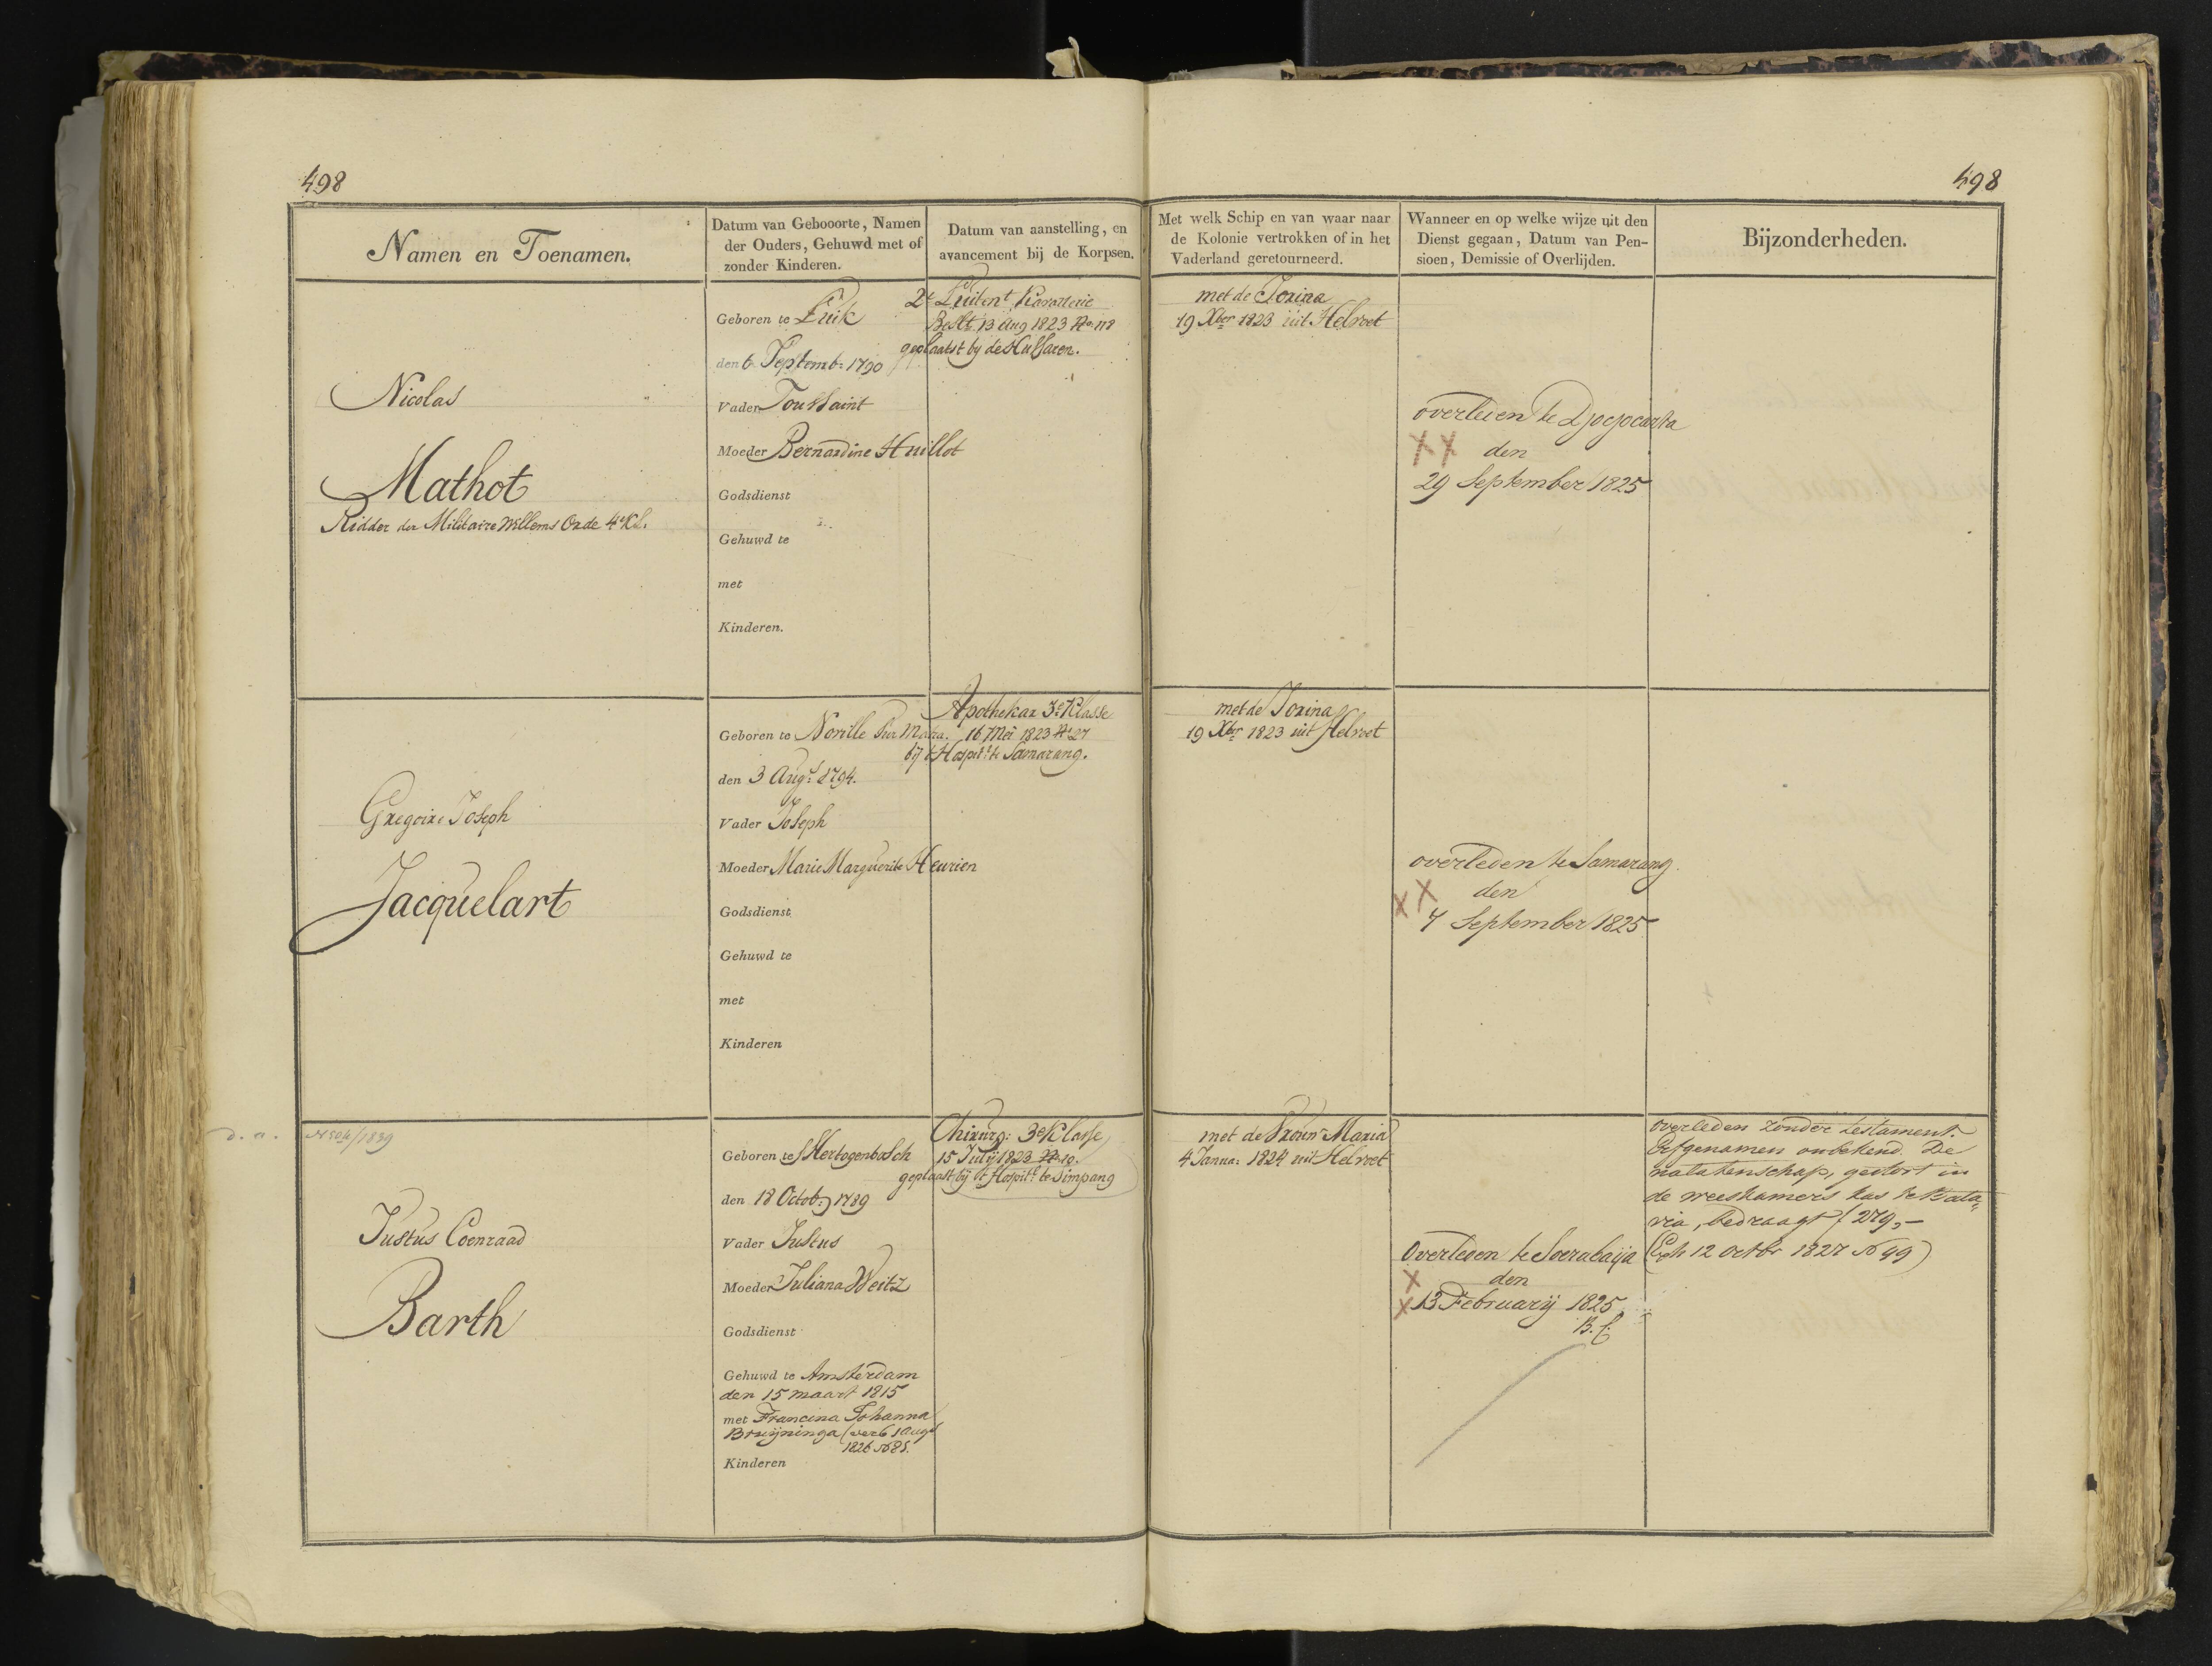 498
498
Namen en Toenamen.
Datum van Gebooorte, Namen
der Ouders, Gehuwd met of
zonder Kinderen.
Datum van aanstelling, en
avancement bij de Korpsen.
Met welk Schip en van waar naar
de Kolonie vertrokken of in het
Vaderland geretourneerd.
Wanneer en op welke wijze uit den
Dienst gegaan, Datum van Pen-
sioen, Demissie of Overlijden.
Bijzonderheden.
Nicolas
Mathot
Ridder der Militaire Willems Orde 4e Kl.
Geboren te Luik
den 6 Septemb: 1790
Vader Toussaint
Moeder Bernardine Huillot
Godsdienst
Gehuwd te
met
Kinderen.
2e Luitent Kavallerie
Beslt. 13 Aug 1823 No. 118
geplaatst by de Hussaren.
met de Jorina
19 Xber 1823 uit Helvoet
overleen te Djocjocarta
XX den
29 September 1825
Gregoire Joseph
Jacquelart
Geboren te Norille
den 3 Augt 1794.
Vader Joseph
Moeder Marie Marguerite Heurien
Godsdienst
Gehuwd te
met
Kinderen
Apothekar 3e Klasse
16 Mei 1823 No 27
bij 't Hospitl te Samarang.
met de Jorina
19 Xber 1823 uit Helvoet
overleden te Samarang
XX den
4 September 1825
d. a. N 504/1839
Justus Coenraad
Barth
Geboren te s'Hertogenbosch
den 18 Octob: 1789
Vader Justus
Moeder Juliana Weitz
Godsdienst
Gehuwd te Amsterdam
den 15 maart 1815
met Francina Johanna
Bruijninga (verb 1 Augs
1826 No 85.
Kinderen
Chirurg: 3e Klasse
15 Julij 1823 No. 10.
geplaatst bij 't Hospitl te Simpang
met de Vrouw Maria
4 Janna: 1824 uit Helvoet
Overleden te Soerabaija
X den
X 13 Februarij 1825
B. f.
overleden zonder testament.
Erfgenamen onbekend. De
nalatenschap, gestort in
de weeskamers kas te Bata„
via, bedraagt ƒ 279,-
(Exh 12 octbr 1827 No 99)